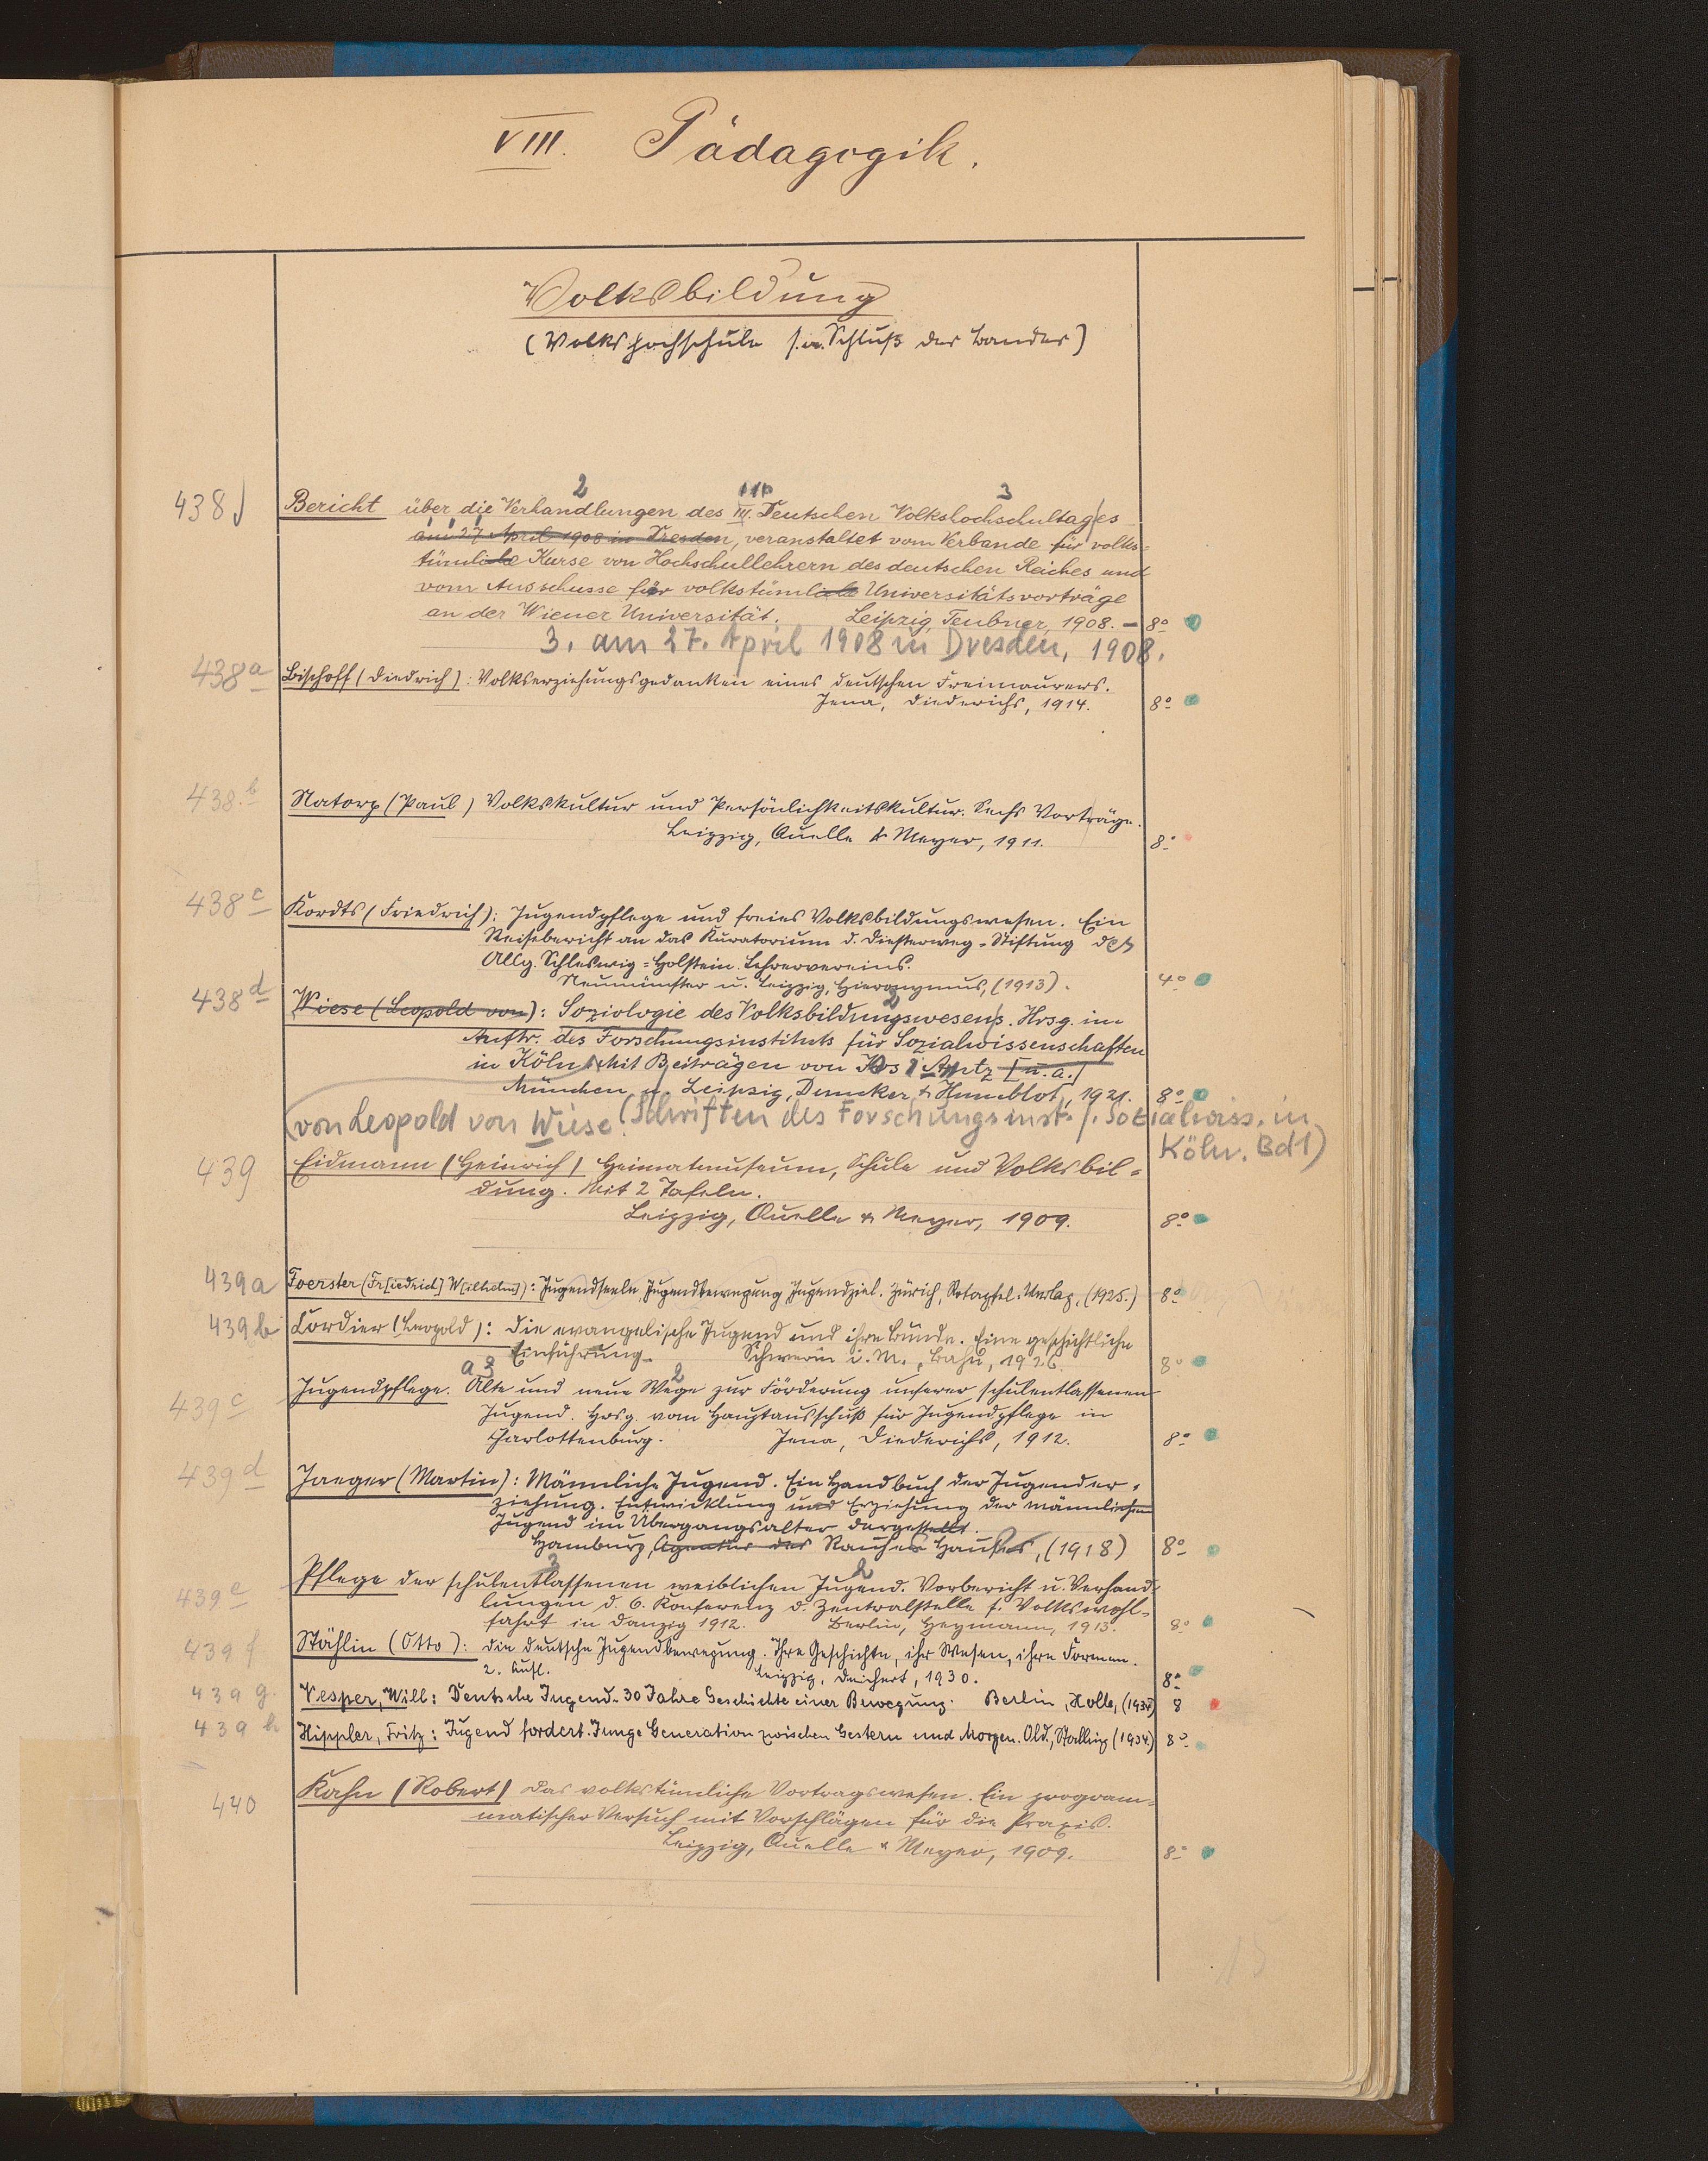 VIII. Pädagogik.
Volksbildung
(Volkshochschule s. a. Schluß des Bandes)
438
2 3
Bericht über die Verhandlungen des III. Deutschen Volkshochschultages
am 27. April 1908 in Dresden, veranstaltet vom Verbande für volks-
tümliche Kurse von Hochschullehrern des deutschen Reiches und
vom Ausschusse für volkstümliche Universitätsvorträge
an der Wiener Universität. Leipzig, Teubner, 1908. – 8°
3. am 27. April 1908 in Dresden, 1908.
438a Bischoff (Diedrich): Volkserziehungsgedanken eines deutschen Freimaurers.
Jena, Diederichs, 1914. 8°
438b Natorp (Paul) Volkskultur und Persönlichkeitskultur. Sechs Vorträge.
Leipzig, Quelle & Meyer, 1911. 8°
438c Kordts (Friedrich): Jugendpflege und freies Volksbildungswesen. Ein
Reisebericht an das Kuratorium d. Diesterweg-Stiftung des
Allg. Schleswig-Holstein. Lehrervereins.
Neumünster u. Leipzig, Hieronymus, (1913). 4°
438d Wiese (Leopold von): Soziologie des Volksbildungswesens. Hrsg. im
Auftr. des Forschungsinstituts für Sozialwissenschaften
in Köln Mit Beiträgen von Antz [u. a.]
München u. Leipzig, Duncker & Humblot, 1921. 8°
von Leopold von Wiese. (Schriften des Forschungsinst. f. Sozialwiss. in
Köln. Bd 1)
439 Eidmann (Heinrich) Heimatmuseum, Schule und Volksbil-
dung. Mit 2 Tafeln.
Leipzig, Quelle & Meyer, 1909. 8°
439a Foerster (Fr[iedrich] W[ilhelm]): Jugendseele, Jugendbewegung, Jugendziel. Zürich, Rotapfel-Verlag, (1925.) 8°
439b Cordier (Leopold): Die evangelische Jugend und ihre Bünde. Eine geschichtliche
Einführung. Schwerin i. M., Bahn, 1926. 8°
a 3 2
439c Jugendpflege. Alte und neue Wege zur Förderung unserer schulentlassenen
Jugend. Hrsg. vom Hauptausschuß für Jugendpflege in
Charlottenburg. Jena, Diederichs, 1912. 8°
439d Jaeger (Martin): Männliche Jugend. Ein Handbuch der Jugender-
ziehung. Entwicklung und Erziehung der männlichen
Jugend im Übergangsalter dargestellt.
Hamburg, Agentur des Rauhen Hauses, (1918) 8°
3 2
439e Pflege der schulentlassenen weiblichen Jugend. Vorbericht u. Verhand-
lungen d. 6. Konferenz d. Zentralstelle f. Volkswohl-
fahrt in Danzig 1912. Berlin, Heymann, 1913. 8°
439f Stählin (Otto): Die deutsche Jugendbewegung. Ihre Geschichte, ihr Wesen, ihre Formen.
2. Aufl. Leipzig, Deichert, 1930. 8°
439g Vesper, Will: Deutsche Jugend. 30 Jahre Geschichte einer Bewegung. Berlin, Holle, (1934) 8
439h Hippler, Fritz: Jugend fordert. Junge Generation zwischen Gestern und Morgen. Old., Stalling (1934) 8°
440 Kahn (Robert) Das volkstümliche Vortragswesen. Ein program-
matischer Versuch mit Vorschlägen für die Praxis.
Leipzig, Quelle & Meyer, 1909. 8°
15